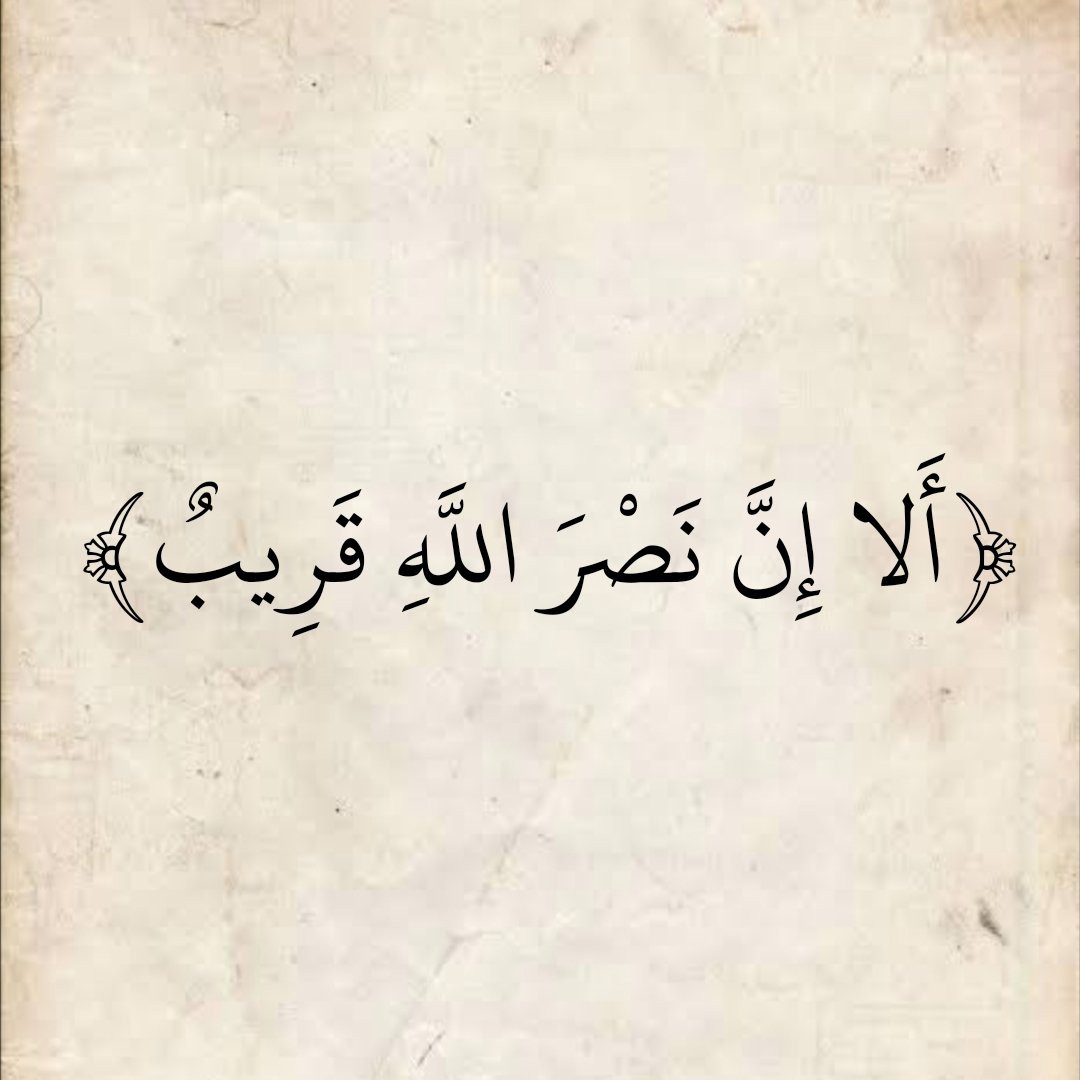 ﴿أَلا إِنَّ نَصْرَ اللَّهِ قَرِيبٌ﴾